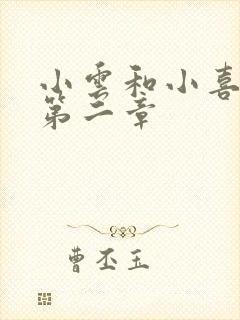 小雲和小喜
第二章
曹丕玉